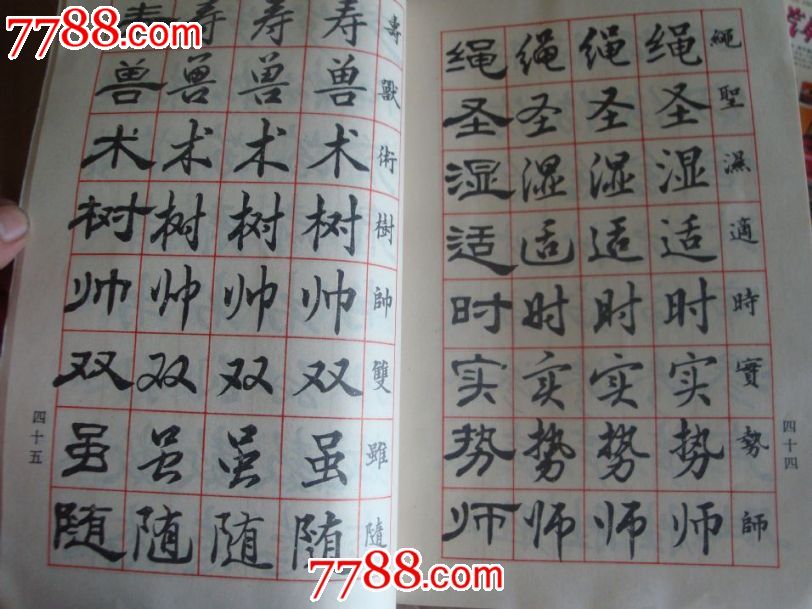 7788.com
7788.com
繩 绳 绳 绳 绳
聖 圣 圣 圣 圣
濕 湿 湿 湿 湿
適 适 适 适 适
時 时 时 时 时
實 实 实 实 实
勢 势 势 势 势
師 师 师 师 师
四十四
壽 寿 寿 寿 寿
獸 兽 兽 兽 兽
術 术 术 术 术
樹 树 树 树 树
帥 帅 帅 帅 帅
雙 双 双 双 双
雖 虽 虽 虽 虽
隨 随 随 随 随
四十五
7788.com
7788.com